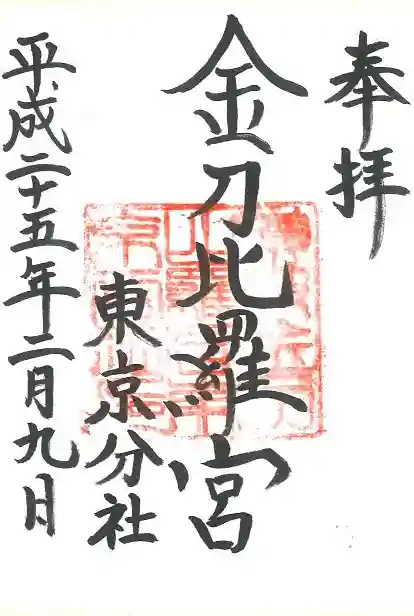 奉拝
金刀比羅宮
東京分社
平成二十五年二月九日